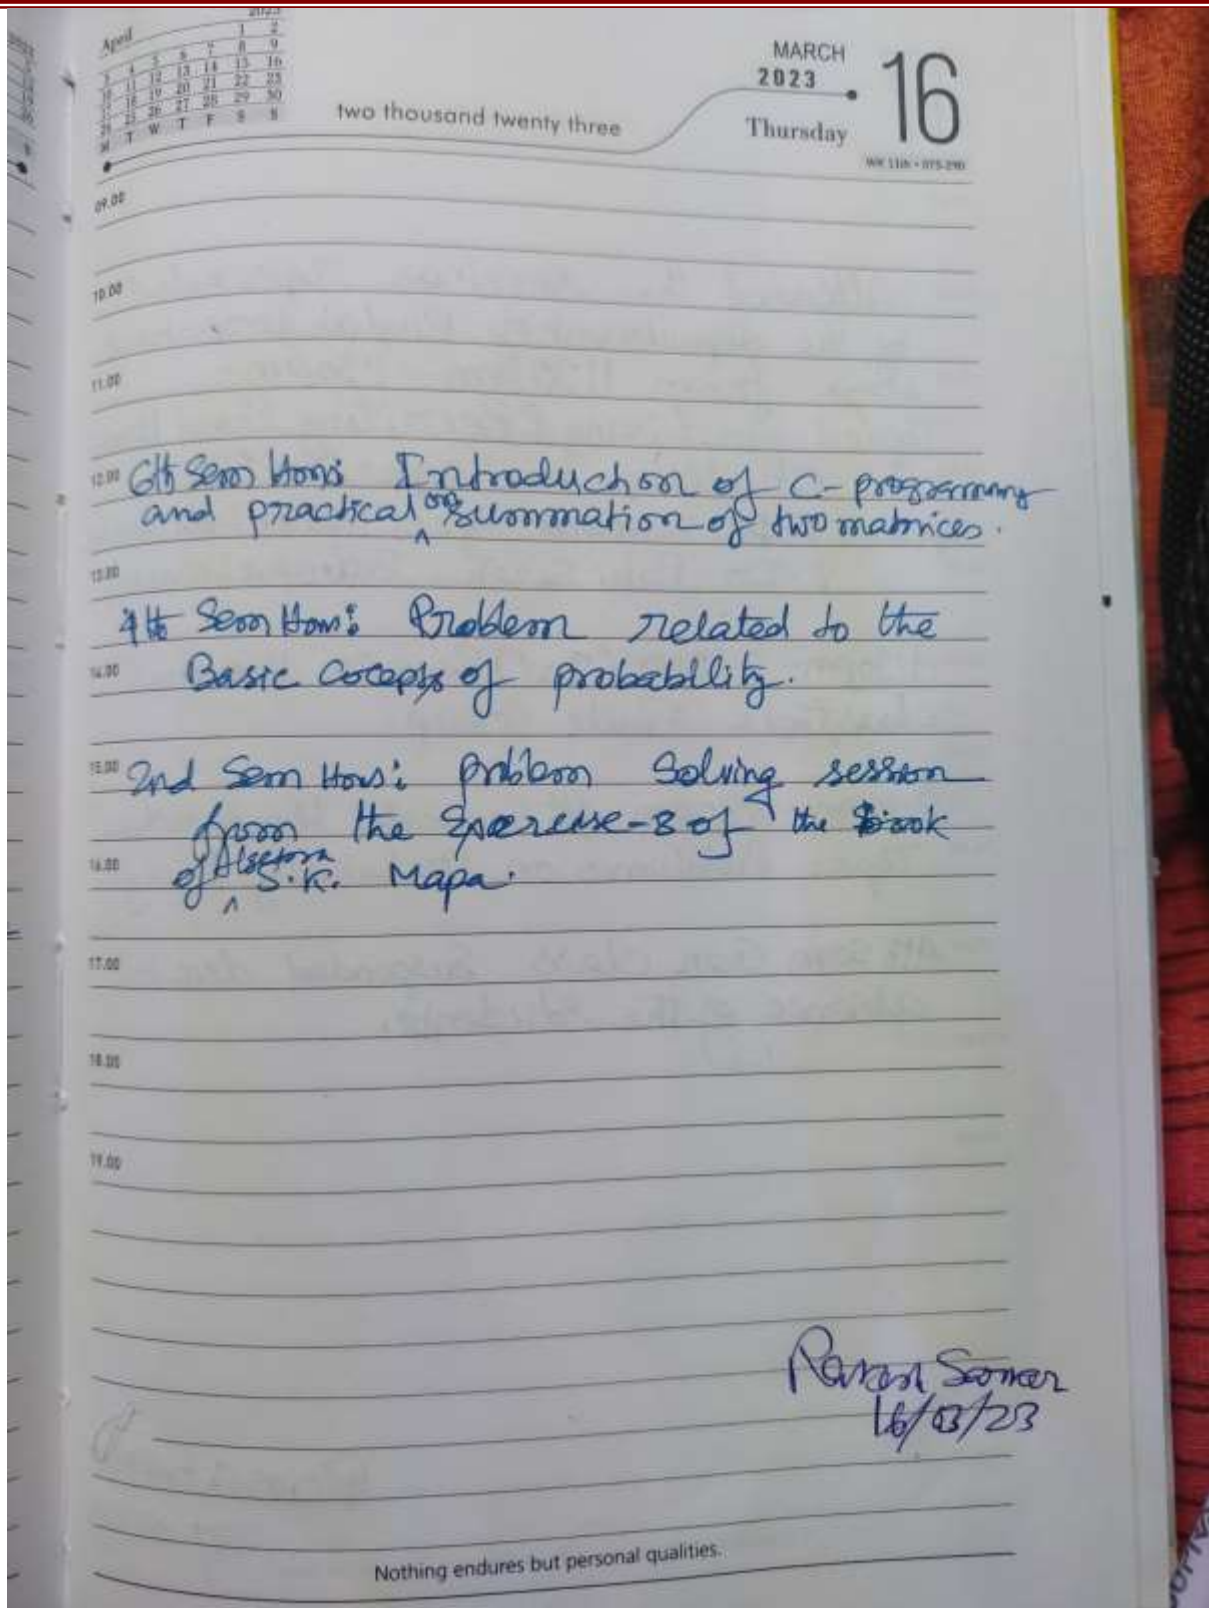 April
2023
1 2
3 4 5 6 7 8 9
10 11 12 13 14 15 16
17 18 19 20 21 22 23
24 25 26 27 28 29 30
M T W T F S S
two thousand twenty three
MARCH
2023
Thursday
16
09.00
10.00
11.00
12.00 6th Sem Hons: Introduction of C-programming
and practical on summation of two matrices.
13.00
4th Sem Hons: Problem related to the
14.00 Basic Cocepts of probability.
15.00 2nd Sem Hons: problem Solving session
from the Exercise-3 of the book
16.00 of Algebra S.K. Mapa.
17.00
18.00
19.00
16/03/23
Nothing endures but personal qualities.